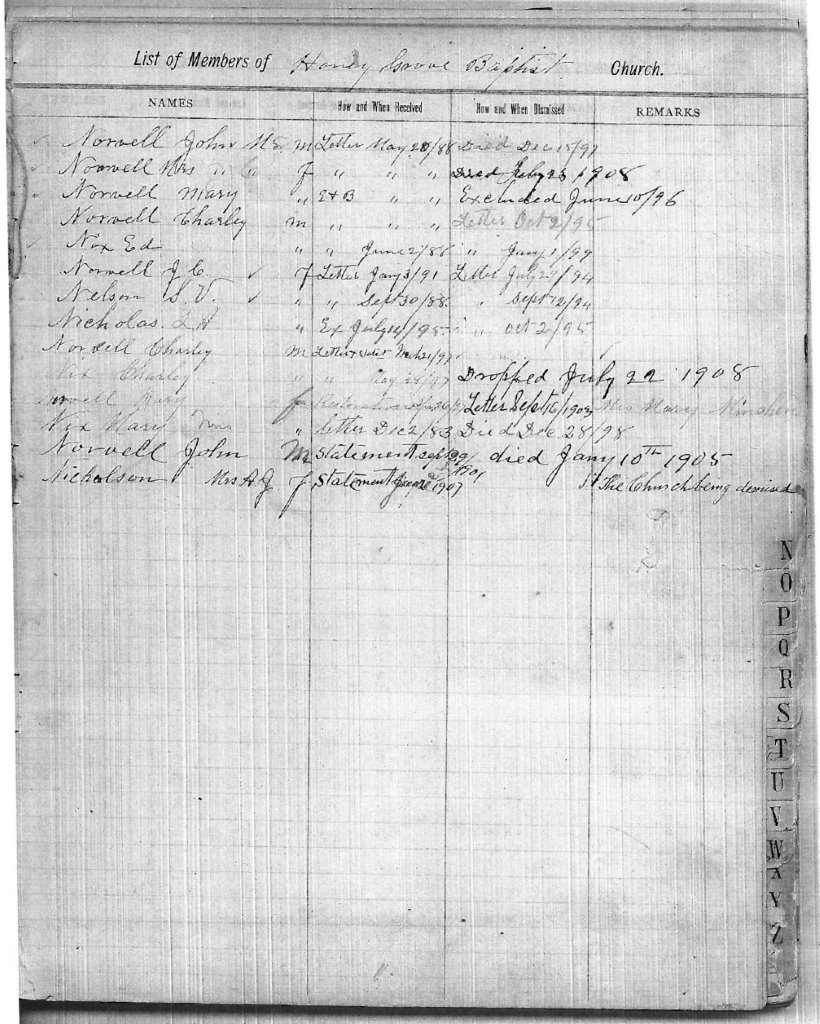 List of Members of Honey Grove Baptist Church.
NAMES How and When Received How and When Dismissed REMARKS
Norvell John m Letter May 20/88 Died Dec 15/97
Norvell Mrs f " " " Died July 23 1908
Norvell Mary " E & B " " Excluded June 10/96
Norvell Charley m " " " Letter Oct 2/95
Nix Ed " " June 2/88 " Jany 1/99
Norvell J C f Letter Jany 3/91 Letter July 29/94
Nelson S. V. " " Sept 30/88 " Sept 12/94
Nicholas " Ex July 14/95 " Oct 2/95
Norvell Charley m Letter
Nix Charley " " May Dropped July 22 1908
Norvell Mary f Letter Sept 16/1903 Mrs Mary
Nix Mary Mrs " Letter Dec 2/83 Died Dec 28/98
Norvell John M Statement Sept 29/1901 died Jany 10th 1905
Nicholson Mrs A J f Statement June 1907 The Church being demised
N
O
P
Q
R
S
T
U
V
W
X
Y
Z